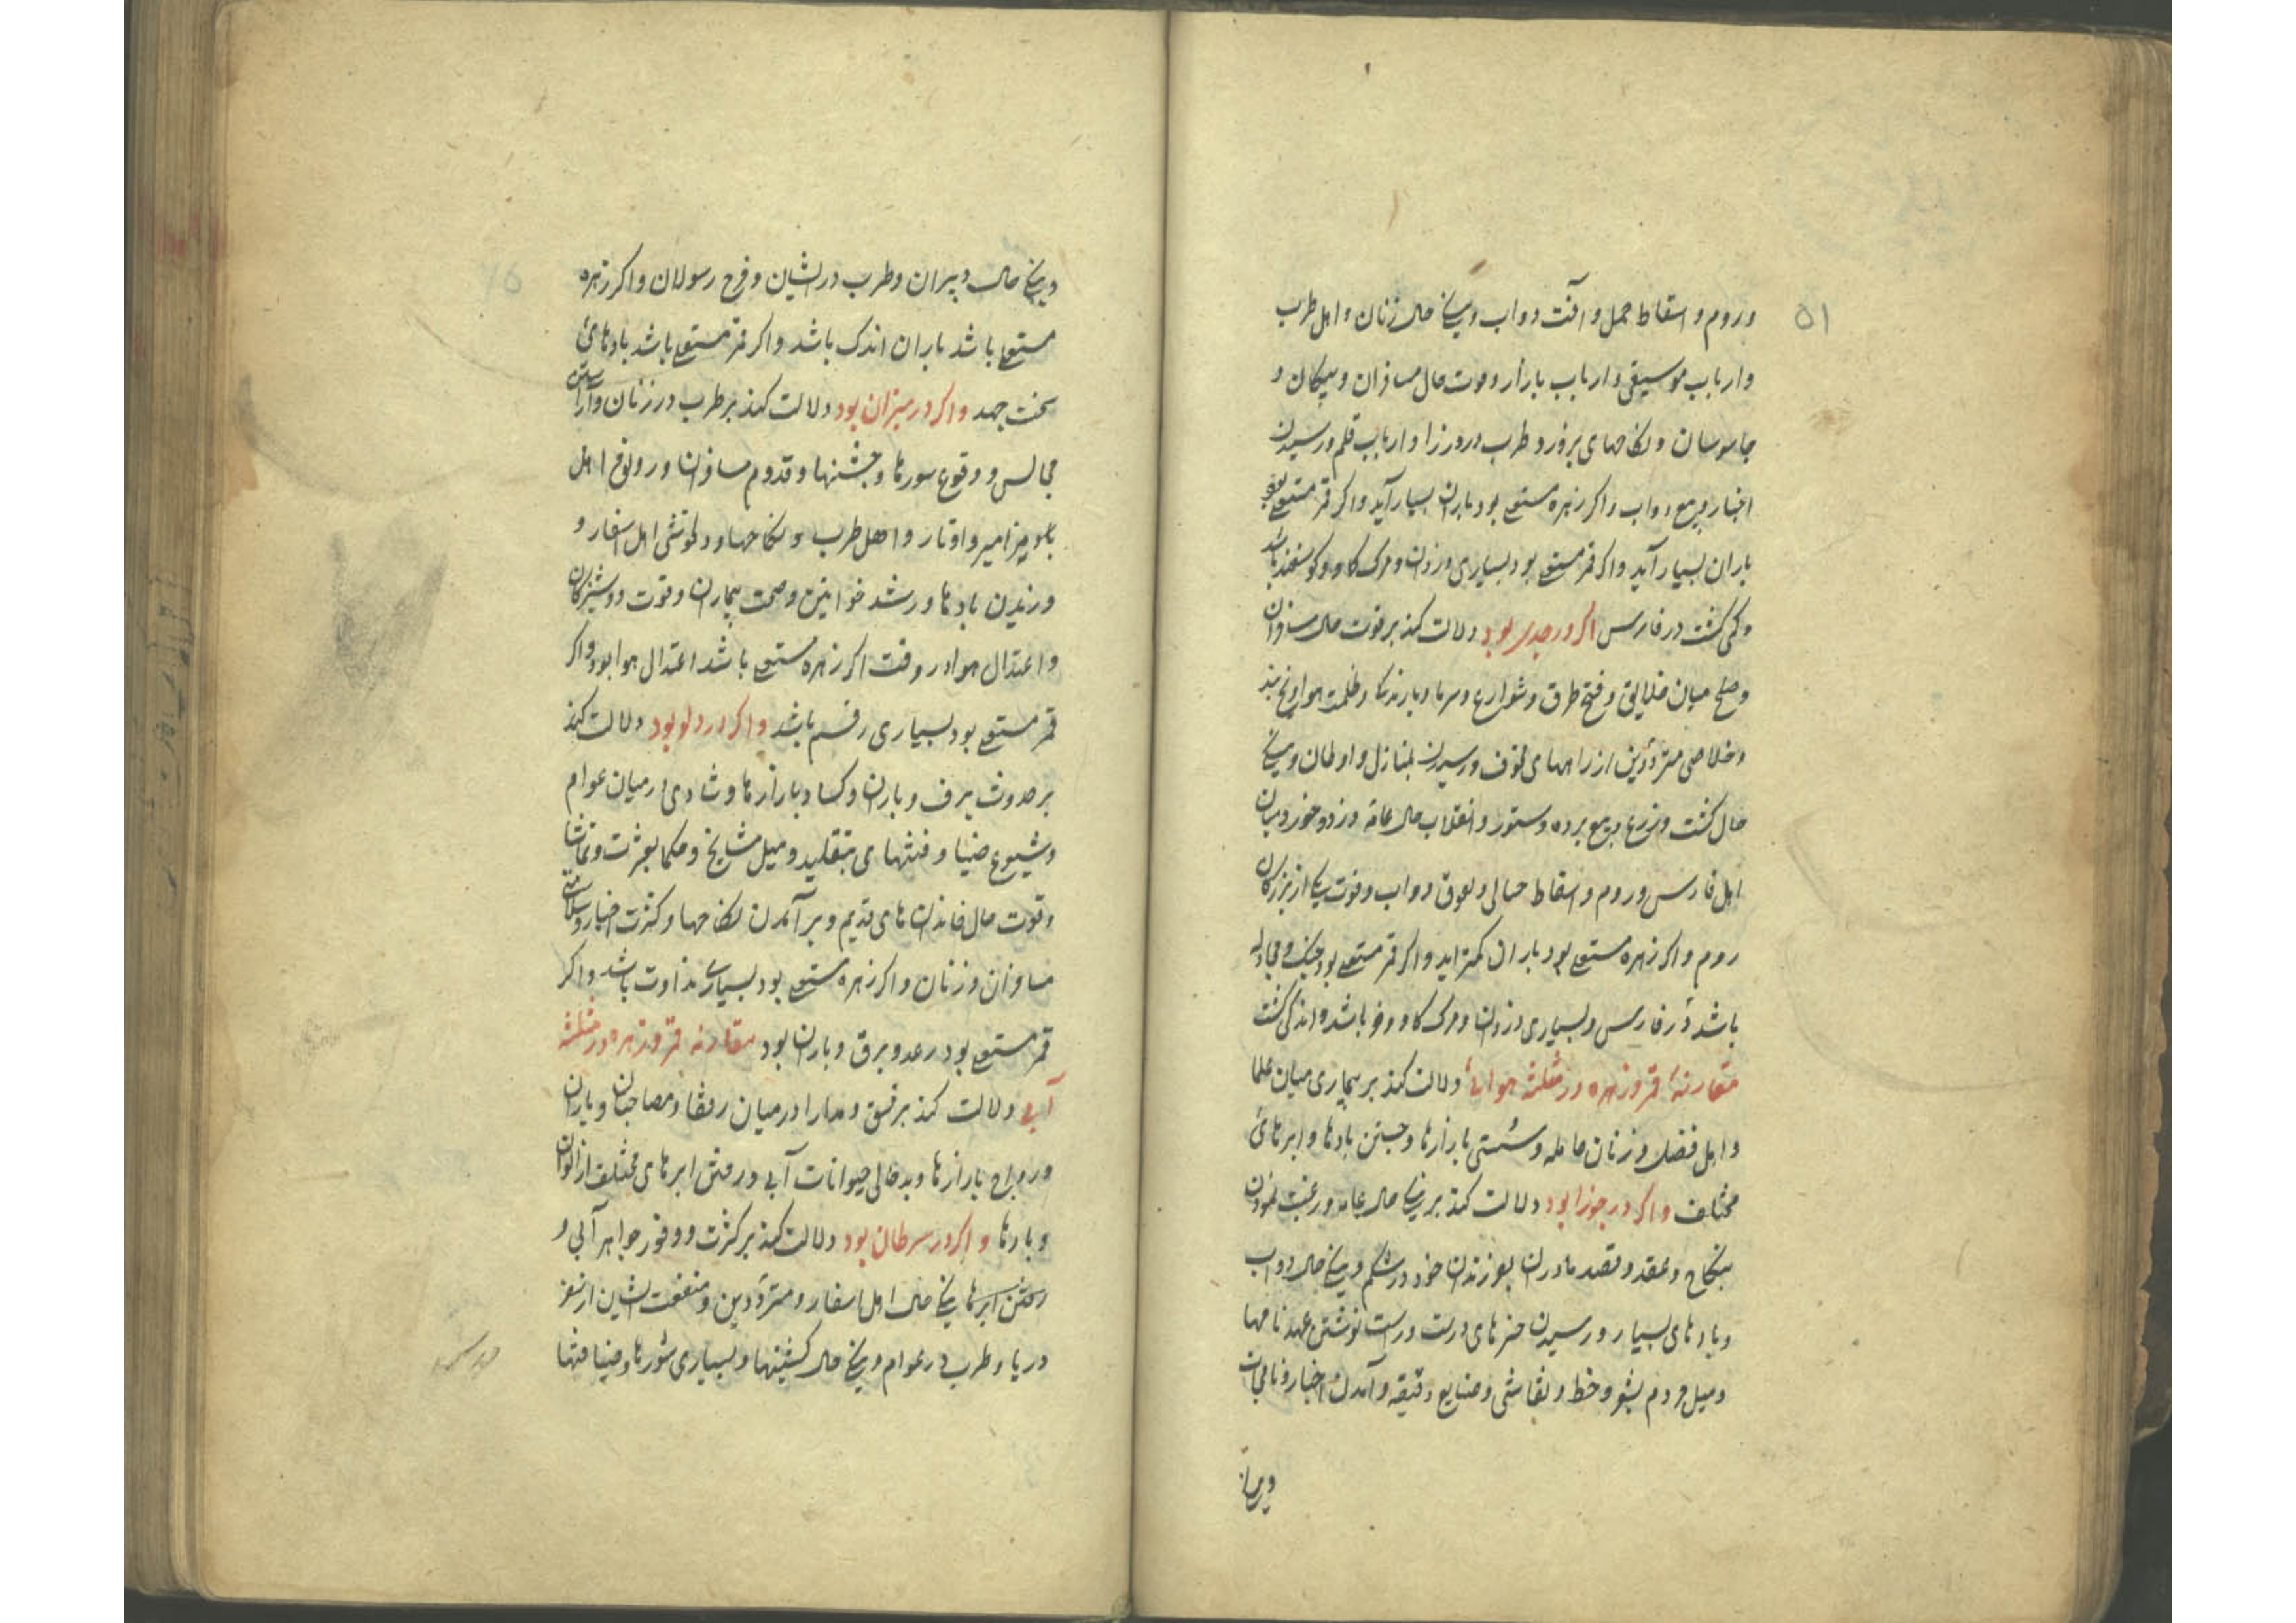 ۵۱
و روم و اسقاط حمل و آفت دواب و نیکی حال زنان و اهل طرب
و ارباب موسیقی و ارباب بازار و قوت حال مسافران و پیکان و
جاسوسان و نکاحهای پرفور و طرب در وزرا و ارباب قلم و رسیدن
اخبار و بیع دواب و اکر زهره مستعلی بود باران بسیار آید و اکر قمر مستعلی بود
باران بسیار آید و اکر قمر مستعلی بود بسیاری دزدان و مرک کاو و کوسفند باشد
و کمی کشت در فارس اکر در جدی بود دلالت کند بر قوت حال مسافران
و صلح میان خلایق و فتح طرق و شوارع و سرما و بارندکی و ظلمت هوا و یخ بند
و خلاصی مترددین از راههای خوف و رسیدن بمنازل و اوطان و نیکی
حال کشت و زرع و بیع برده و ستور و انقلاب حال عامه و زد و خورد میان
اهل فارس و روم و اسقاط حبالی و دواب و فوت یکی از بزرکان
روم و اکر زهره مستعلی بود باران کمتر اید و اکر قمر مستعلی بود جنک و مجادله
باشد در فارس و بسیاری دزدان و مرک کاو و خر باشد و اندکی کشت
مقارنه قمر و زهره در مثلثه هوائی دلالت کند بر بیماری میان علما
و اهل فضل و زنان حامله و سستی بازارها و جستن بادها و ابرهای
مختلف و اکر در جوزا بود دلالت کند بر نیکی حال عامه و رغبت نمودن
بنکاح و عقد و قصد مادران بفرزندان خود در شکم و نیکی حال دواب
و بادهای بسیار و رسیدن خبرهای درست و راست نوشتن عهد نامها
و میل مردم بشعر و خط و نقاشی و صنایع دقیقه و آمدن اخبار و نامجات
و نیکی
و نیکی حال دبیران و طرب در ایشان و فرح رسولان و اکر زهره
مستعلی باشد باران اندک باشد و اکر قمر مستعلی باشد بادهای
سخت جهد و اکر در میزان بود دلالت کند بر طرب در زنان و آراستن
مجالس و وقوع سورها و جشنها و قدوم مسافران و رونق اهل
مزامیر و اوتار و اهل طرب و نکاحها و دلخوشی اهل اسفار و
وزیدن بادها و رشد خواتین و صحت بیماران و قوت دوشیزکان
و اعتدال هوا در وقت اکر زهره مستعلی باشد اعتدال هوا بود و اکر
قمر مستعلی بود بسیاری باشد و اکر در دلو بود دلالت کند
بر حدوث برف و باران و کساد بازارها و شادی در میان عوام
و شیوع ضیا و فتنهای بتقلید و میل مشایخ و حکما بعشرت و تماشا
و قوت حال خاندانهای قدیم و بر آمدن نکاحها و کثرت اخبار و سلامتی
مسافران و زنان و اکر زهره مستعلی بود بسیاری نداوت باشد و اکر
قمر مستعلی بود رعد و برق و باران بود مقارنه قمر و زهره در مثلثه
آبی دلالت کند بر فسق و مدارا در میان رفقا و مصاحبان و یاران
و رواج بازارها و بدحالی حیوانات آبی و رفتن ابرهای مختلف از الوان
و بادها و اکر در سرطان بود دلالت کند بر کثرت و وفور جواهر آبی و
رفتن ابرها نیکی حال اهل اسفار و مترددین و منفعت ایشان از سفر
دریا و طرب در عوام و نیکی حال کشتیها و بسیاری شورها و ضیافتها